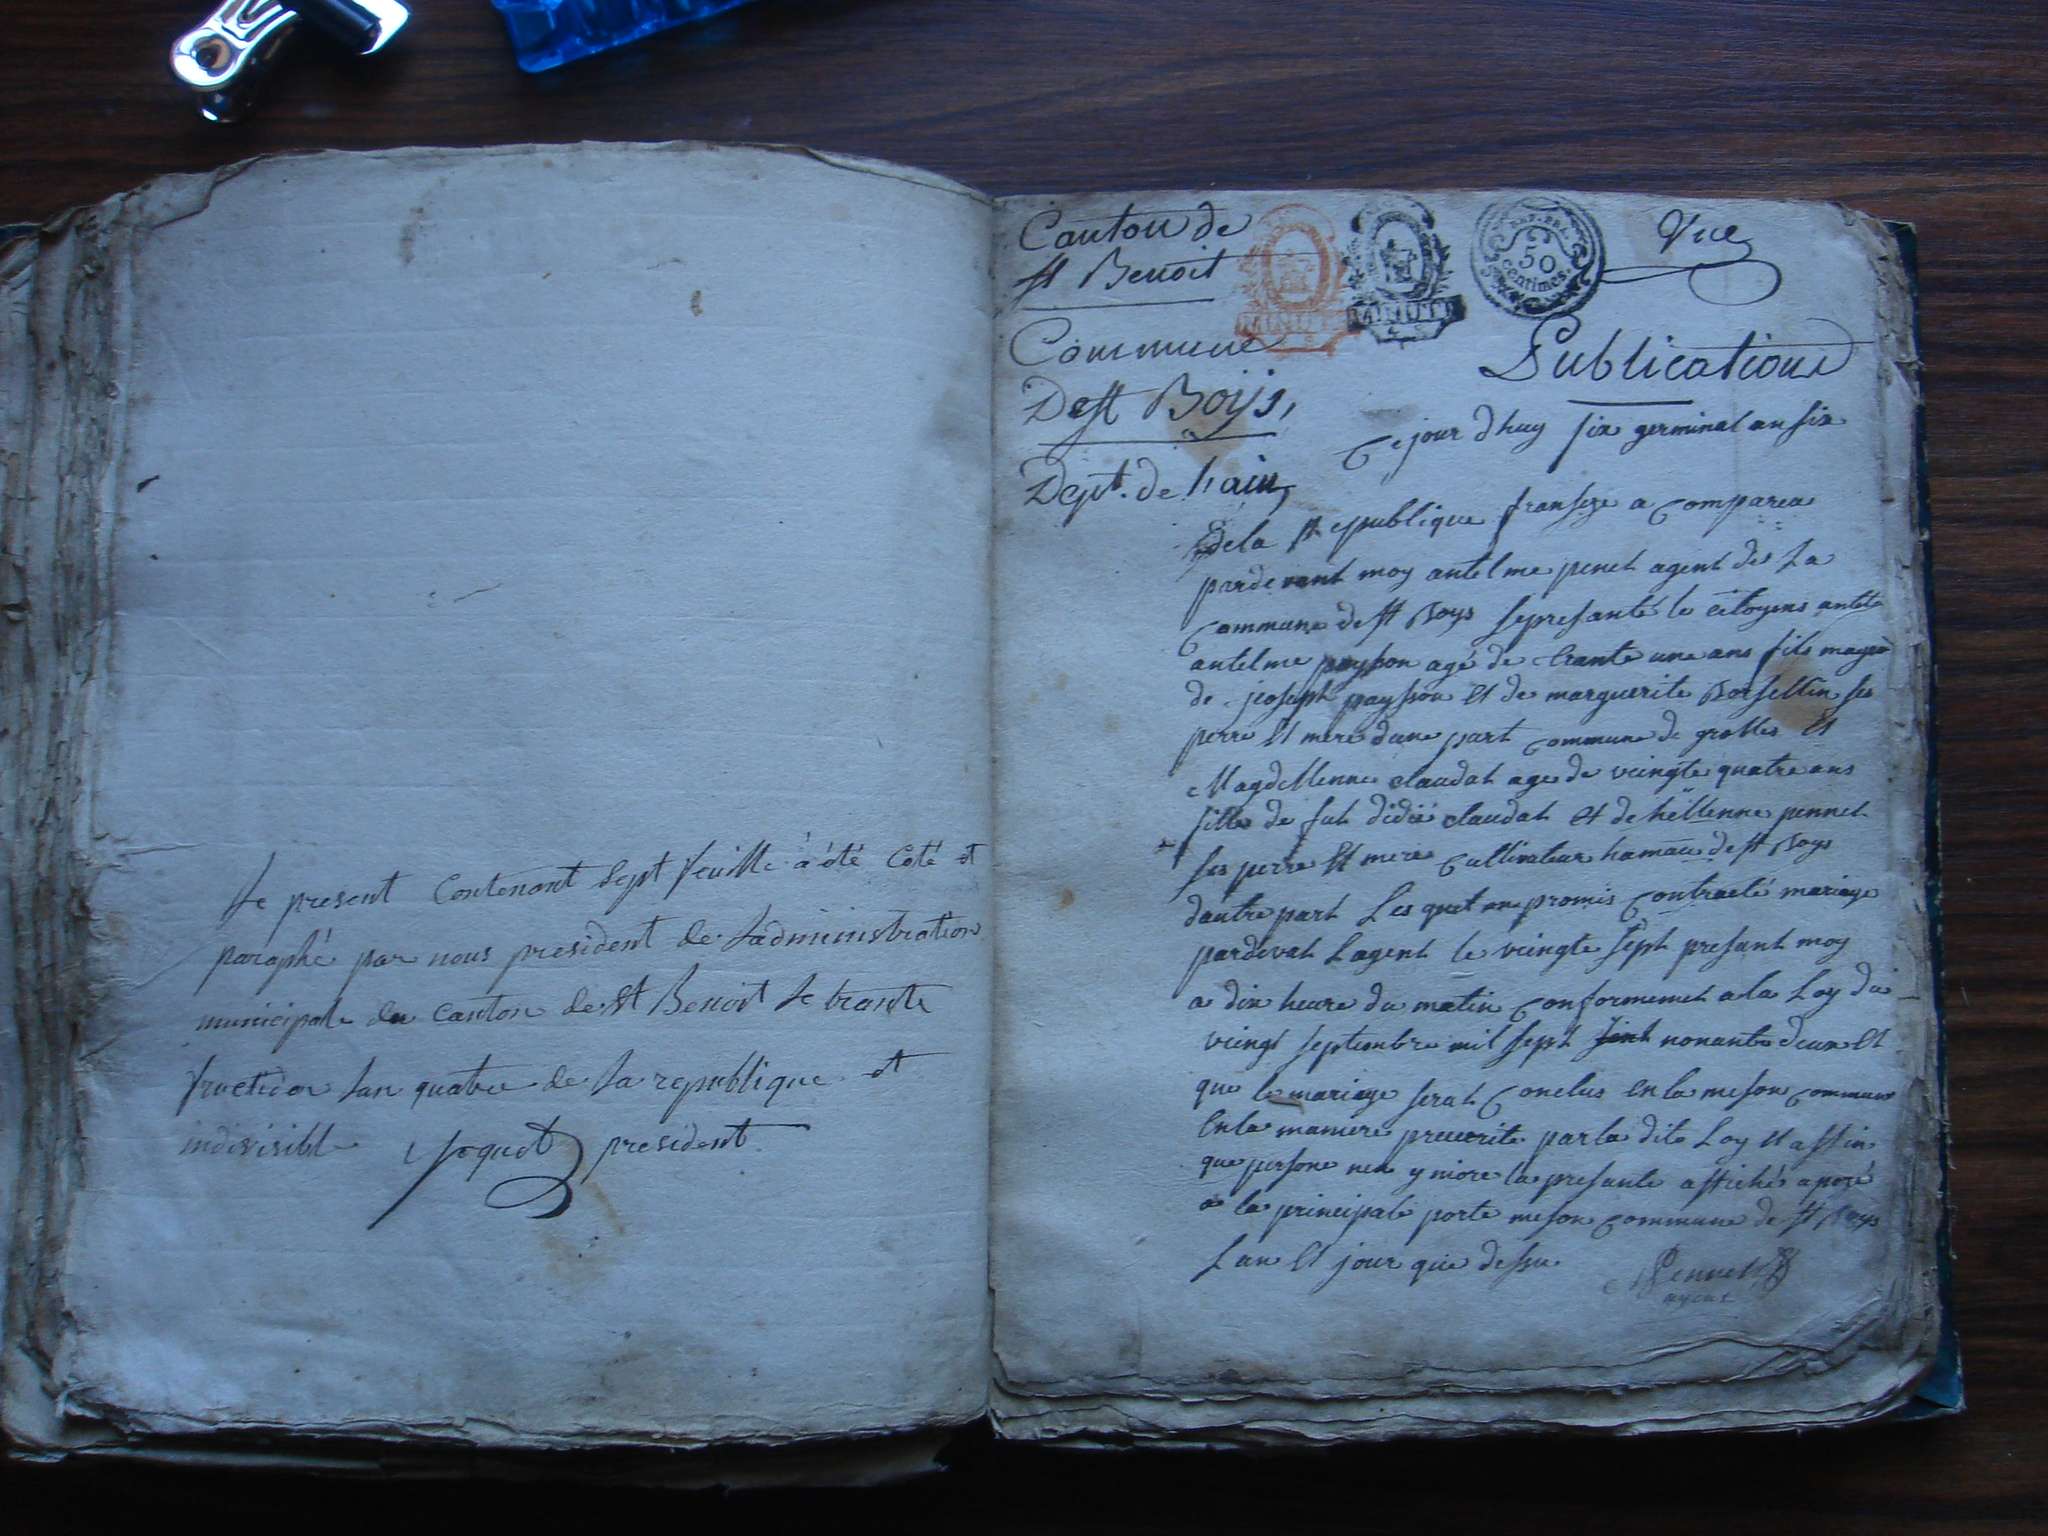 Le present Contenant Sept feuille a été Coté et
paraphé par nous president de Ladministration
municipale du Canton de St Benoit Le trante
fructidor Lan quatre de La republique et
indivisible president
Canton de
St Benoit
Commune
De St Boijs,
Dept. de Lain,
MINUTE
MINUTE
50
centimes.
Vue
Publication
Ce jour dhuy six germinal an six
De la Republique fransese a comparea
pardevant moy antelme penet agent de La
Commune de St Boys se presanté le citoyens
antelme paysson agé de trante une ans fils mageur
de joseph paysson et de marguerite Borsellin ses
perre Et mere dune part commune de grolles Et
Magdellenne claudat age de veingte quatre ans
fille de fut didié claudat et de hellenne pennet
ses perre Et mere Cultivateur hamau de St Boys
dautre part Les quel promis Contracté mariage
pardevat Lagent le veingte sept presant moy
a dix heure du matin Conformemet a la Loy du
veingt septembre mil sept sent nonante deux Et
que le mariage serat Conclus en la meson commune
En la maniere prescrite par la dite Loy Et affin
que persone nen y niore la presante affiché aposé
a la principale porte meson commune de St Boys
Lan Et jour que dessu
Pennet
agent